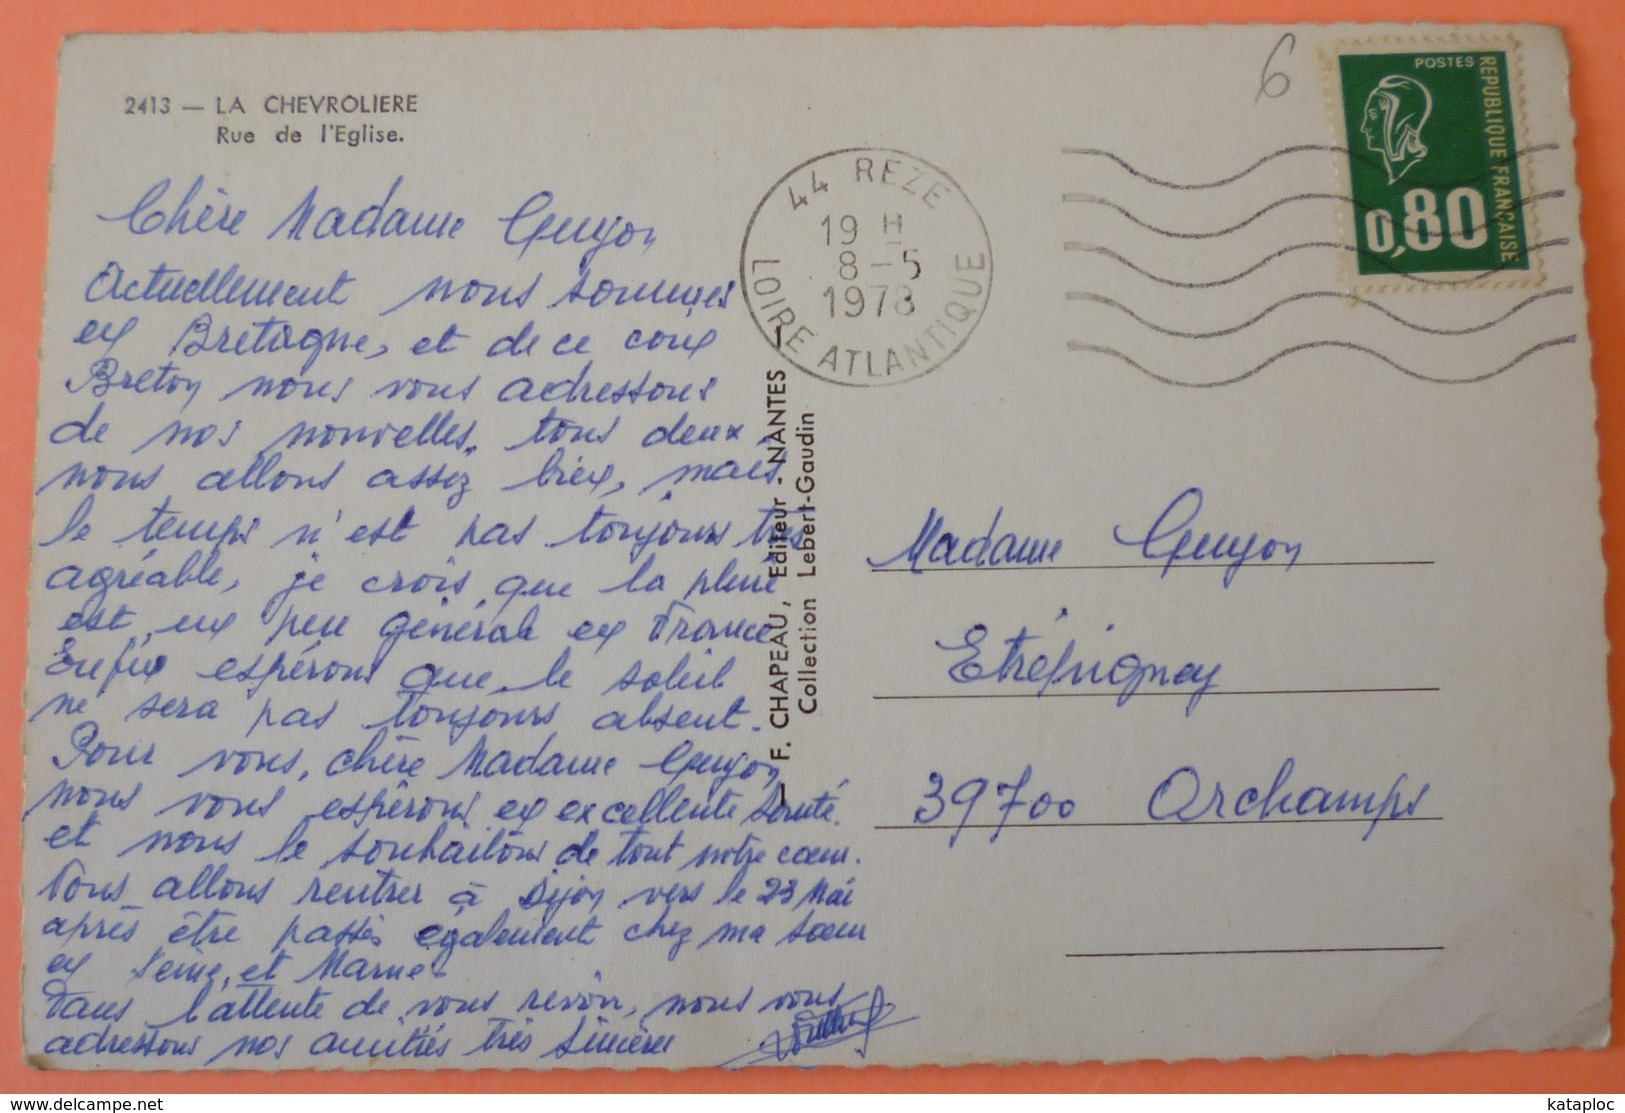 2413 — LA CHEVROLIERE
Rue de l'Eglise.
Chère Madame Guyon
Actuellement nous sommes
en Bretagne, et de ce coin
Breton nous vous adressons
de nos nouvelles, tous deux
nous allons assez bien, mais
le temps n'est pas toujours très
agréable, je crois que la pluie
est un peu général en France
Enfin espérons que le soleil
ne sera pas toujours absent.
Pour vous, chère Madame Guyon
nous vous espérons en excellente santé.
et nous le souhaitons de tout notre cœur.
Nous allons rentrer à Dijon vers le 23 Mai
après être passés également chez ma sœur
en Seine et Marne.
Dans l'attente de vous revoir, nous vous
adressons nos amitiés très sincères
F. CHAPEAU, Editeur - NANTES
Collection Lebert-Gaudin
44 REZE
19 H
8-5
1978
LOIRE ATLANTIQUE
6
POSTES
REPUBLIQUE FRANÇAISE
0,80
Madame Guyon
Etrépigney
39700 Orchamps
https://www.delcampe.net
kataploc